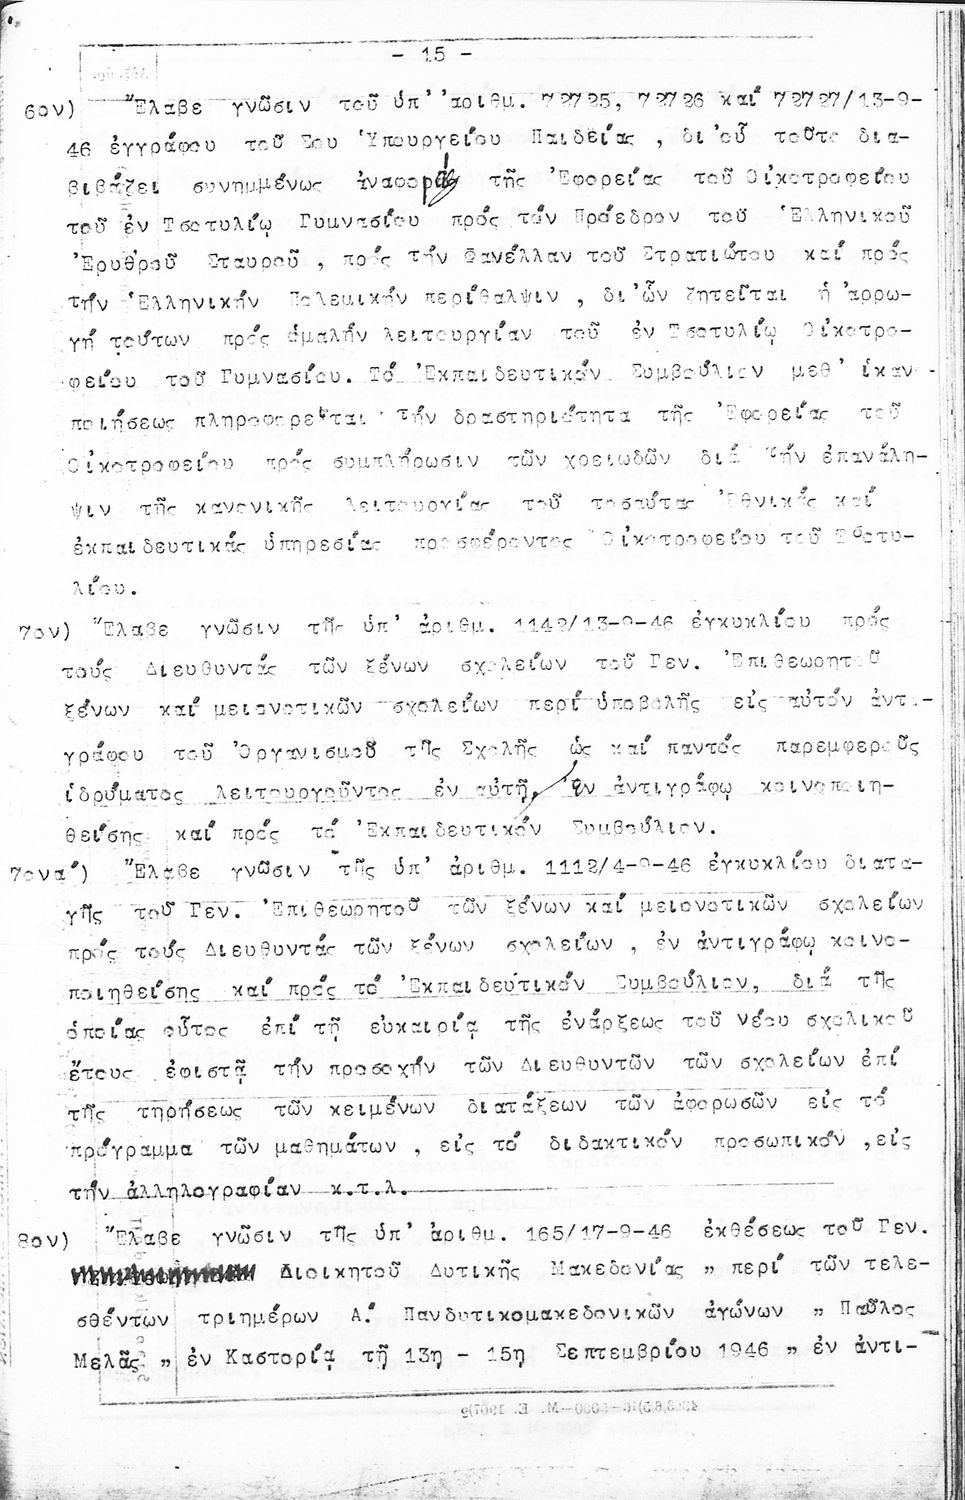 - 15 -
6ον) Ἔλαβε γνῶσιν τοῦ ὑπ' ἀριθμ. 72725, 72726 καί 72727/13-9-
46 ἐγγράφου τοῦ Σου Ὑπουργείου Παιδείας , δι'οὗ τοῦτο δια-
βιβάζει συνημμένως ἀναφοράς τῆς Ἐφορείας τοῦ Οἰκοτροφείου
τοῦ ἐν Τσοτυλίῳ Γυμνασίου πρός τόν Πρόεδρον τοῦ Ἑλληνικοῦ
Ἐρυθροῦ Σταυροῦ , πρός τήν Φανέλλαν τοῦ Στρατιώτου καί πρός
τήν Ἑλληνικήν Πολεμικήν περίθαλψιν , δι'ὧν ζητεῖται ἡ ἀρρω-
γή τούτων πρός ὁμαλήν λειτουργίαν τοῦ ἐν Τσοτυλίῳ Οἰκοτρο-
φείου τοῦ Γυμνασίου. Τό Ἐκπαιδευτικόν Συμβούλιον μεθ' ἱκαν -
ποιήσεως πληροφορεῖται τήν δραστηριότητα τῆς Ἐφορείας τοῦ
Οἰκοτροφείου πρός συμπλήρωσιν τῶν χρειωδῶν διά τήν ἐπανάλη-
ψιν τῆς κανονικῆς λειτουργίας τοῦ τοσαύτας Ἐθνικάς καί
ἐκπαιδευτικάς ὑπηρεσίας προσφέροντος Οἰκοτροφείου τοῦ Τσοτυ-
λίου.
7ον) Ἔλαβε γνῶσιν τῆς ὑπ' ἀριθμ. 1142/13-9-46 ἐγκυκλίου πρός
τούς Διευθυντάς τῶν ξένων σχολείων τοῦ Γεν. Ἐπιθεωρητοῦ
ξένων καί μειονοτικῶν σχολείων περί ὑποβολῆς εἰς αὐτόν ἀντι-
γράφου τοῦ Ὀργανισμοῦ τῆς Σχολῆς ὡς καί παντός παρεμφεροῦς
ἱδρύματος λειτουργοῦντος ἐν αὐτῇ, ἐν ἀντιγράφῳ κοινοποιη-
θείσης καί πρός τό Ἐκπαιδευτικόν Συμβούλιον.
7ονα) Ἔλαβε γνῶσιν τῆς ὑπ' ἀριθμ. 1112/4-9-46 ἐγκυκλίου διατα-
γῆς τοῦ Γεν. Ἐπιθεωρητοῦ τῶν ξένων καί μειονοτικῶν σχολείων
πρός τούς Διευθυντάς τῶν ξένων σχολείων , ἐν ἀντιγράφῳ κοινο-
ποιηθείσης καί πρός τό Ἐκπαιδευτικόν Συμβούλιον, διά τῆς
ὁποίας οὗτος ἐπί τῇ εὐκαιρίᾳ τῆς ἐνάρξεως τοῦ νέου σχολικοῦ
ἔτους ἐφιστᾷ τήν προσοχήν τῶν Διευθυντῶν τῶν σχολείων ἐπί
τῆς τηρήσεως τῶν κειμένων διατάξεων τῶν ἀφορωσῶν εἰς τό
πρόγραμμα τῶν μαθημάτων , εἰς τό διδακτικόν προσωπικόν ,εἰς
τήν ἀλληλογραφίαν κ.τ.λ.
8ον) Ἔλαβε γνῶσιν τῆς ὑπ' ἀριθμ. 165/17-9-46 ἐκθέσεως τοῦ Γεν.
Διοικητοῦ Δυτικῆς Μακεδονίας „ περί τῶν τελε-
σθέντων τριημέρων Α! Πανδυτικομακεδονικῶν ἀγώνων „ Παῦλος
Μελᾶς „ ἐν Καστορίᾳ τῇ 13η - 15η Σεπτεμβρίου 1946 „ ἐν ἀντι-